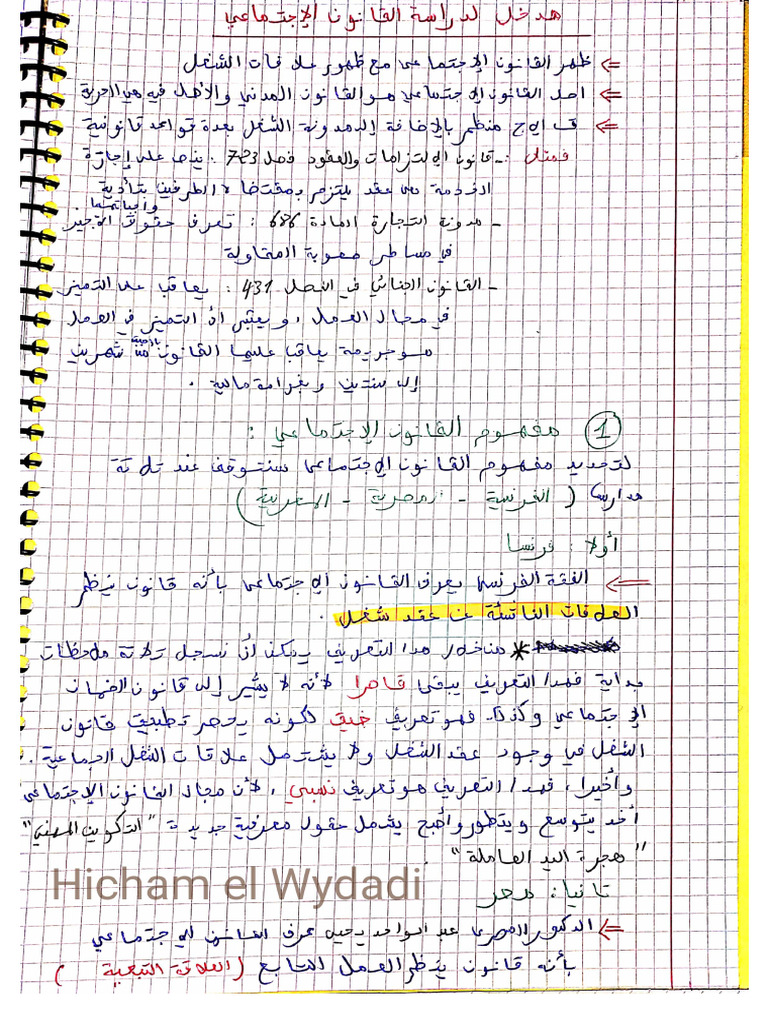 مدخل لدراسة القانون الإجتماعي
⇐ ظهر القانون الإجتماعي مع ظهور علاقات الشغل
⇐ اصل القانون الإجتماعي هو القانون المدني والأصل فيه هي الحرية
⇐ ق الإج منظم بالإضافة إلى مدونة الشغل بعدة قواعد قانونية
فمثلا: - قانون الإلتزامات والعقود فصل 723 : ينص على إجارة
الخدمة هي عقد يلتزم بمقتضاه الطرفين بتأدية
- مدونة التجارة المادة 686 : تعرف حقوق الأجير وأولياتها
في مساطر صعوبة المقاولة
- القانون الجنائي في الفصل 431 : يعاقب على التمييز
في مجال العمل، ويعتبر أن التمييز في العمل
هو جريمة يعاقب عليها القانون من شهرين
إلى سنتين وبغرامة مالية .
1 مفهوم القانون الإجتماعي :
لتحديد مفهوم القانون الإجتماعي سنتوقف عند ثلاثة
مدارس ( الفرنسية - المصرية - المغربية )
أولا : فرنسا
⇐ الفقه الفرنسي يعرف القانون الإجتماعي بأنه قانون ينظم
العلاقات الناتئة عن عقد شغل .
* من خلال هدا التعريف يمكن أن نسجل ثلاثة ملاحظات
بداية فهدا التعريف يبقى قاصرا لأنه لا يشير إلى قانون الضمان
الإجتماعي وكذا. فهو تعريف ضيق لكونه يحصر تطبيق قانون
الشغل في وجود عقد الشغل ولا يشتمل علاقات الشغل الجماعية .
وأخيرا، فهدا التعريف هو تعريف نسبي، لأن مجال القانون الإجتماعي
أخد يتوسع ويتطور وأصبح يشمل حقول معرفية جديدة "التكوين المهني"
"هجرة اليد العاملة"
Hicham el Wydadi
تانيا: مصر
⇐ الدكتور المصري عبد الواحد يحيى عرف القانون الإجتماعي
بأنه قانون ينظم العمل التابع (العلاقة التبعية )